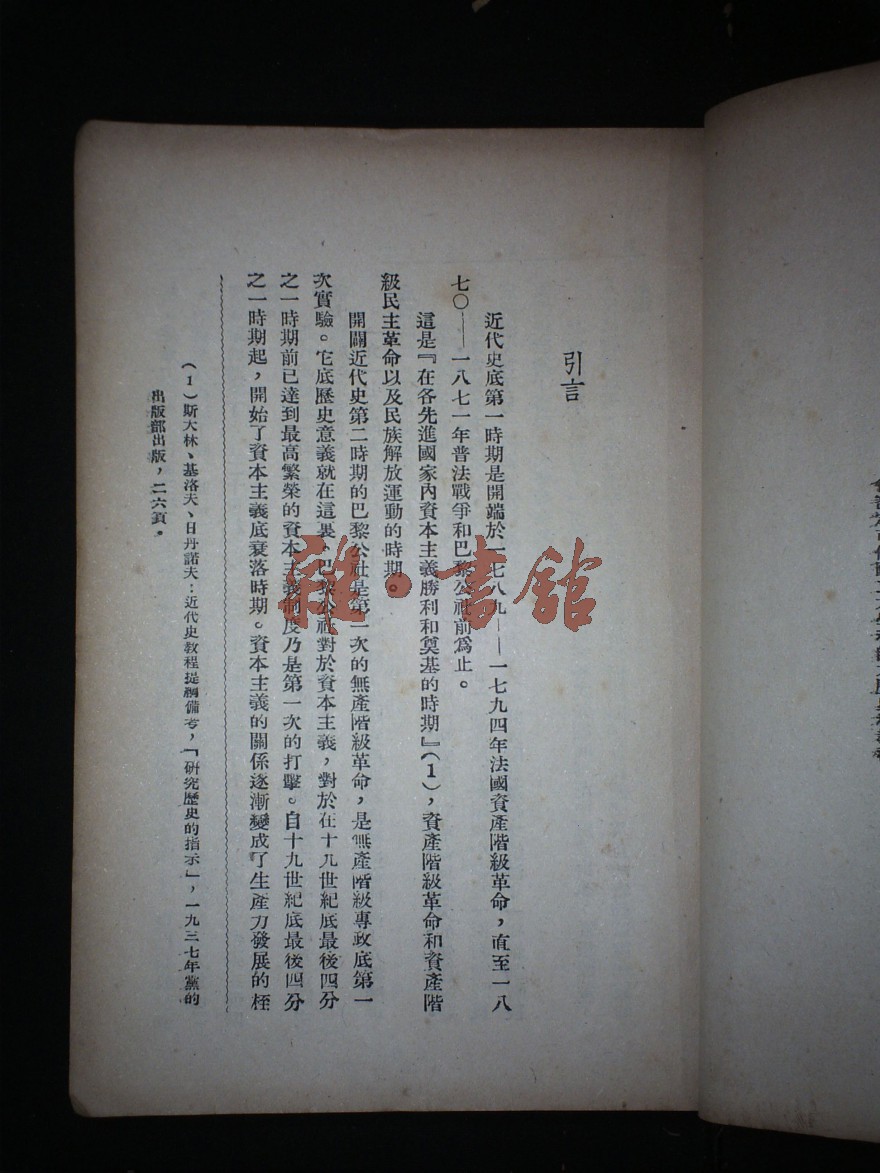 引言
近代史底第一時期是開端於一七八九——一七九四年法國資產階級革命，直至一八
七〇——一八七一年普法戰爭和巴黎公社前爲止。
這是『在各先進國家內資本主義勝利和奠基的時期』(1)，資產階級革命和資產階
級民主革命以及民族解放運動的時期。
開闢近代史第二時期的巴黎公社是第一次的無產階級革命，是無產階級專政底第一
次實驗。它底歷史意義就在這裏、巴黎公社對於資本主義，對於在十九世紀底最後四分
之一時期前已達到最高繁榮的資本主義制度乃是第一次的打擊。自十九世紀底最後四分
之一時期起，開始了資本主義底衰落時期。資本主義的關係逐漸變成了生產力發展的桎
(1)斯大林、基洛夫、日丹諾夫：近代史教程提綱備考，「研究歷史的指示」，一九三七年黨的
出版部出版，二六頁。
雅·書館